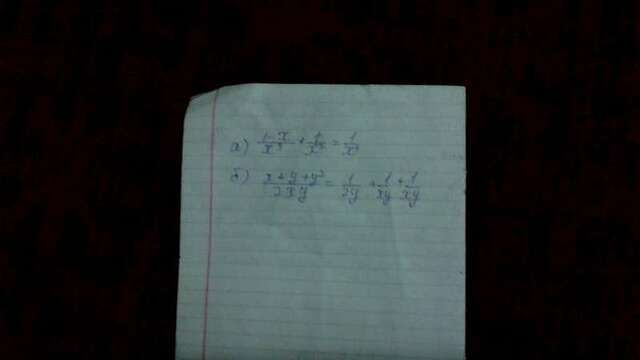 а) (1-x)/x³ + 1/x² = 1/x³
б) (x+y+y²)/2xy = 1/2y + 1/xy + 1/xy